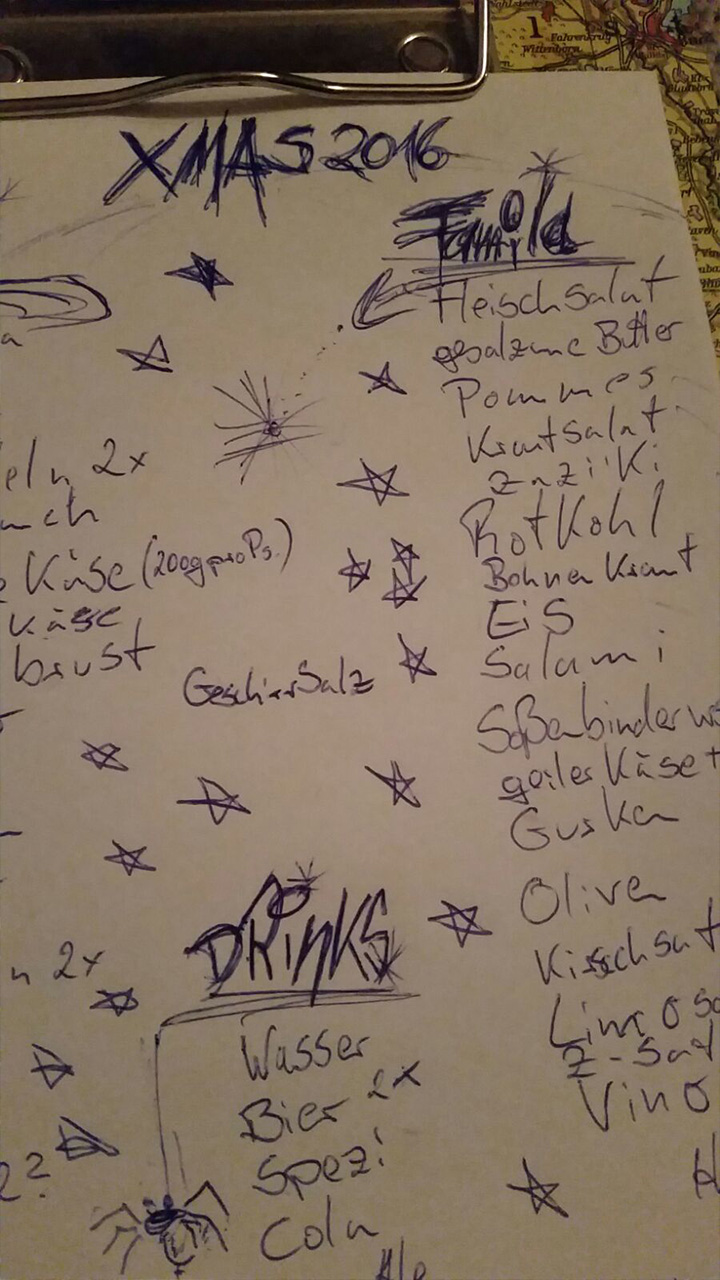 XMAS 2016
Family
Fleischsalat
gesalzene Butter
Pommes
Krautsalat
Zaziki
Rotkohl
Bohnenkraut
EiS
Salami
Soßenbinder
geiler Käse +
Gurken
Oliven
Kirschsaft
Limo
Z-Saf
Vino
eln 2x
uch
Käse (200g pro Ps.)
Käse
brust
GeschirrSalz
n 2x
2?
DRinKS
Wasser
Bier 2x
Spezi
Cola
1
Fahrenkrug
Wittenborn